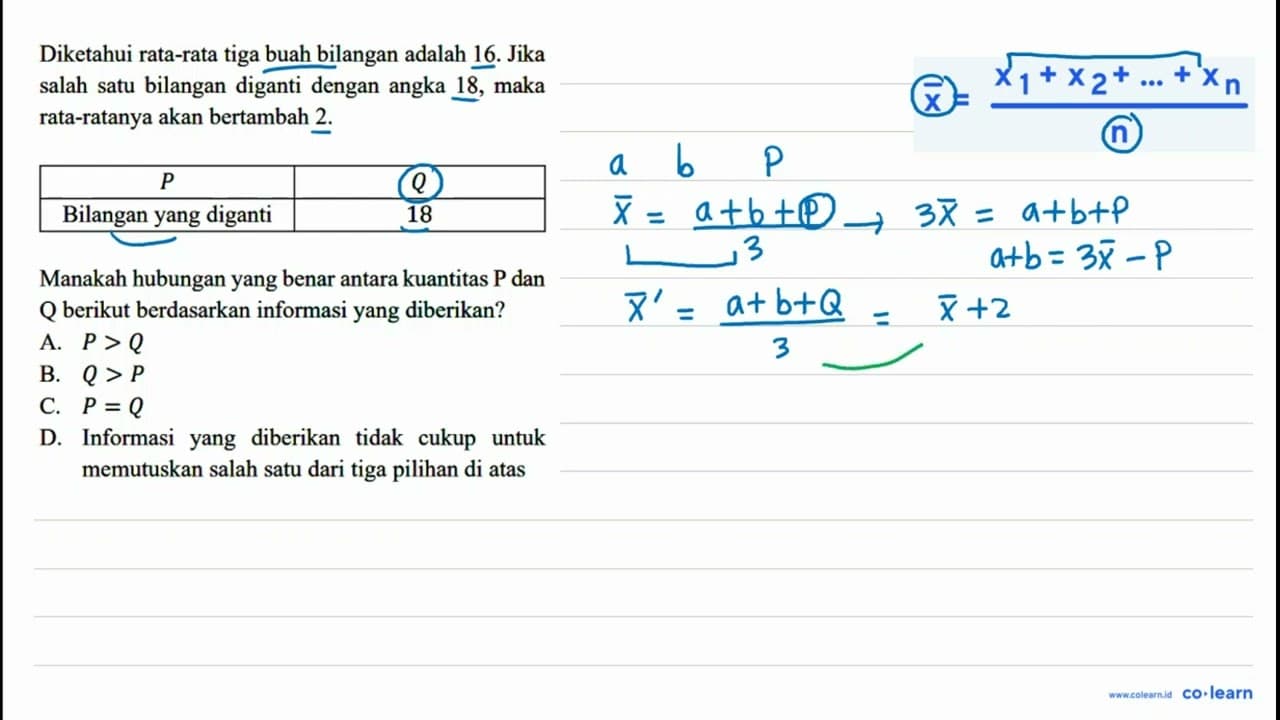 Diketahui rata-rata tiga buah bilangan adalah 16. Jika
salah satu bilangan diganti dengan angka 18, maka
rata-ratanya akan bertambah 2.
P Q
Bilangan yang diganti 18
Manakah hubungan yang benar antara kuantitas P dan
Q berikut berdasarkan informasi yang diberikan?
A. P > Q
B. Q > P
C. P = Q
D. Informasi yang diberikan tidak cukup untuk
memutuskan salah satu dari tiga pilihan di atas
x̄ = x1 + x2 + ... + xn
n
a b P
x̄ = a+b+P → 3x̄ = a+b+P
3
a+b = 3x̄ - P
x̄' = a+b+Q = x̄+2
3
www.colearn.id co·learn